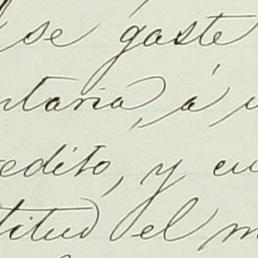 se gaste
ntaria, á
edito, y cu
titud el m